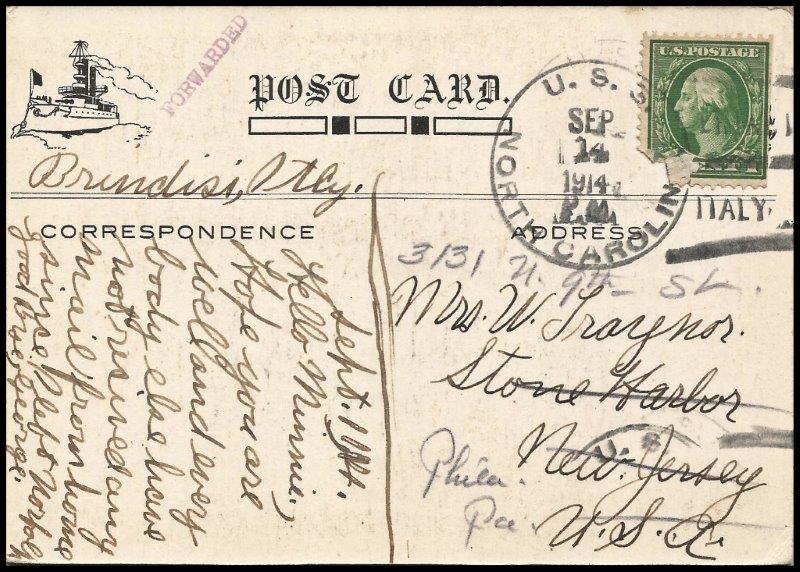 FORWARDED
POST CARD.
U.S. POSTAGE
U. S. S.
NORTH CAROLINA
SEP
14
1914
ITALY
Brindisi, Italy.
CORRESPONDENCE
ADDRESS
Sept. 14th.
Hello Minnie,
Hope you are
well and every
body else have
not resived any
mail from home
since I left Norfolk
good bye George.
3131 N. 9th St.
Mrs. W. Traynor.
Stone Harbor
New Jersey
U.S.A.
Phila.
Pa.
U. S.